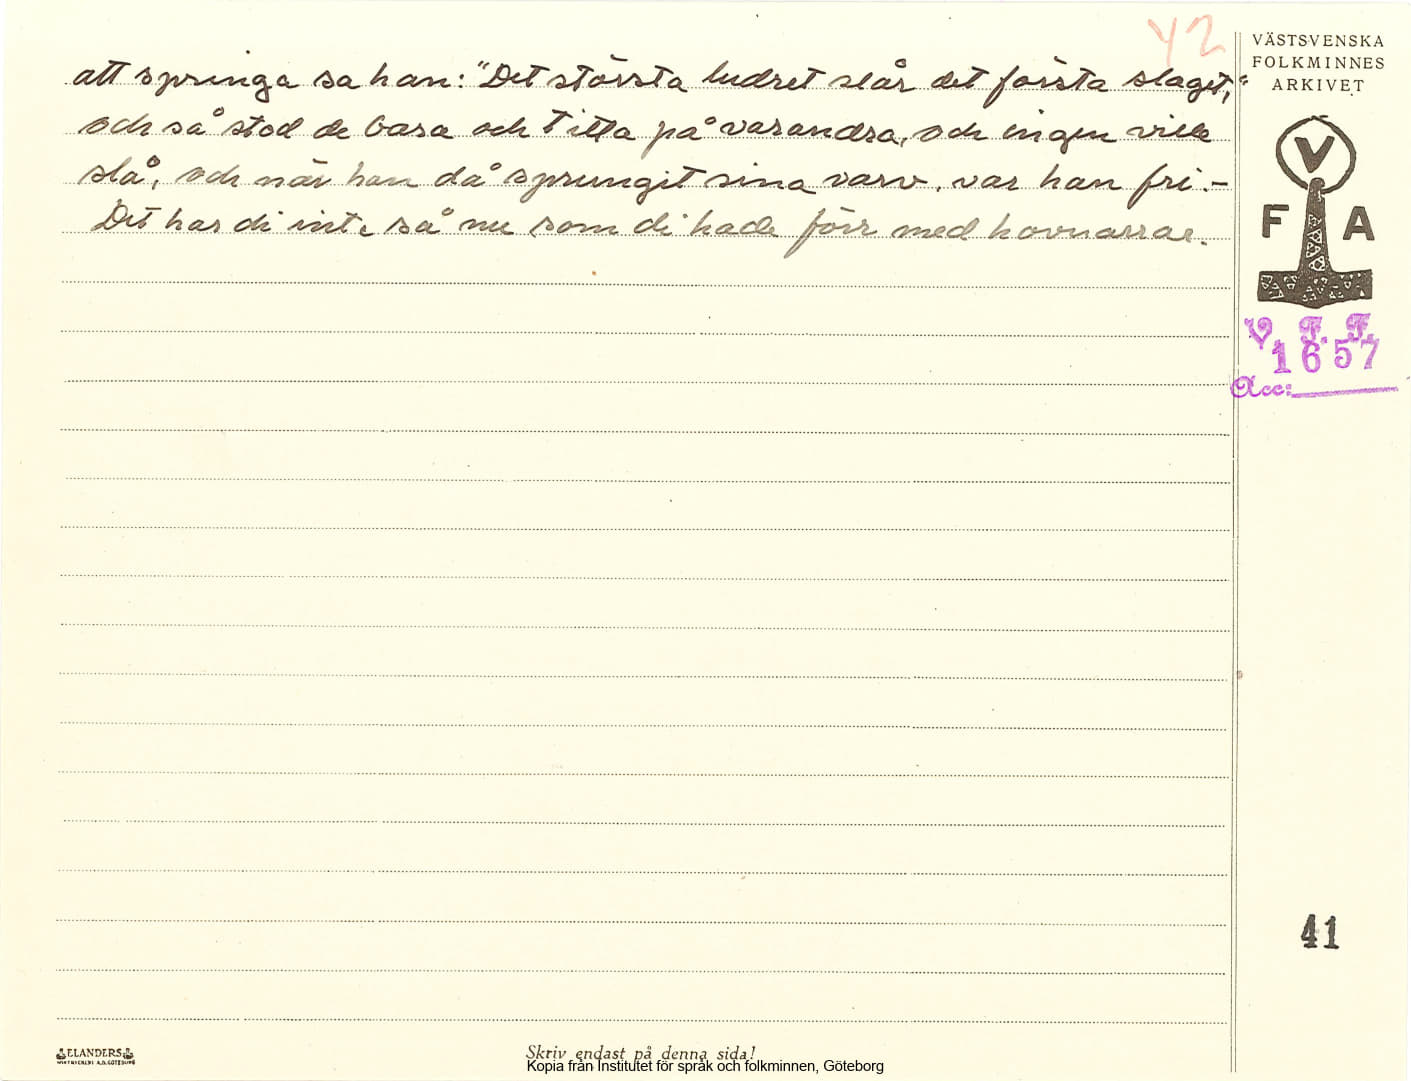 42
VÄSTSVENSKA
FOLKMINNES
ARKIVET
att springa sa han: "Det största ludret slår det första slaget,"
och så stod de bara och titta på varandra, och ingen ville
slå, och när han då sprungit sina varv, var han fri.-
Det har di inte så nu som di hade förr med hovnarrar.
V
F A
V. F. F.
1657
Acc:
41
ELANDERS
Skriv endast på denna sida!
Kopia från Institutet för språk och folkminnen, Göteborg